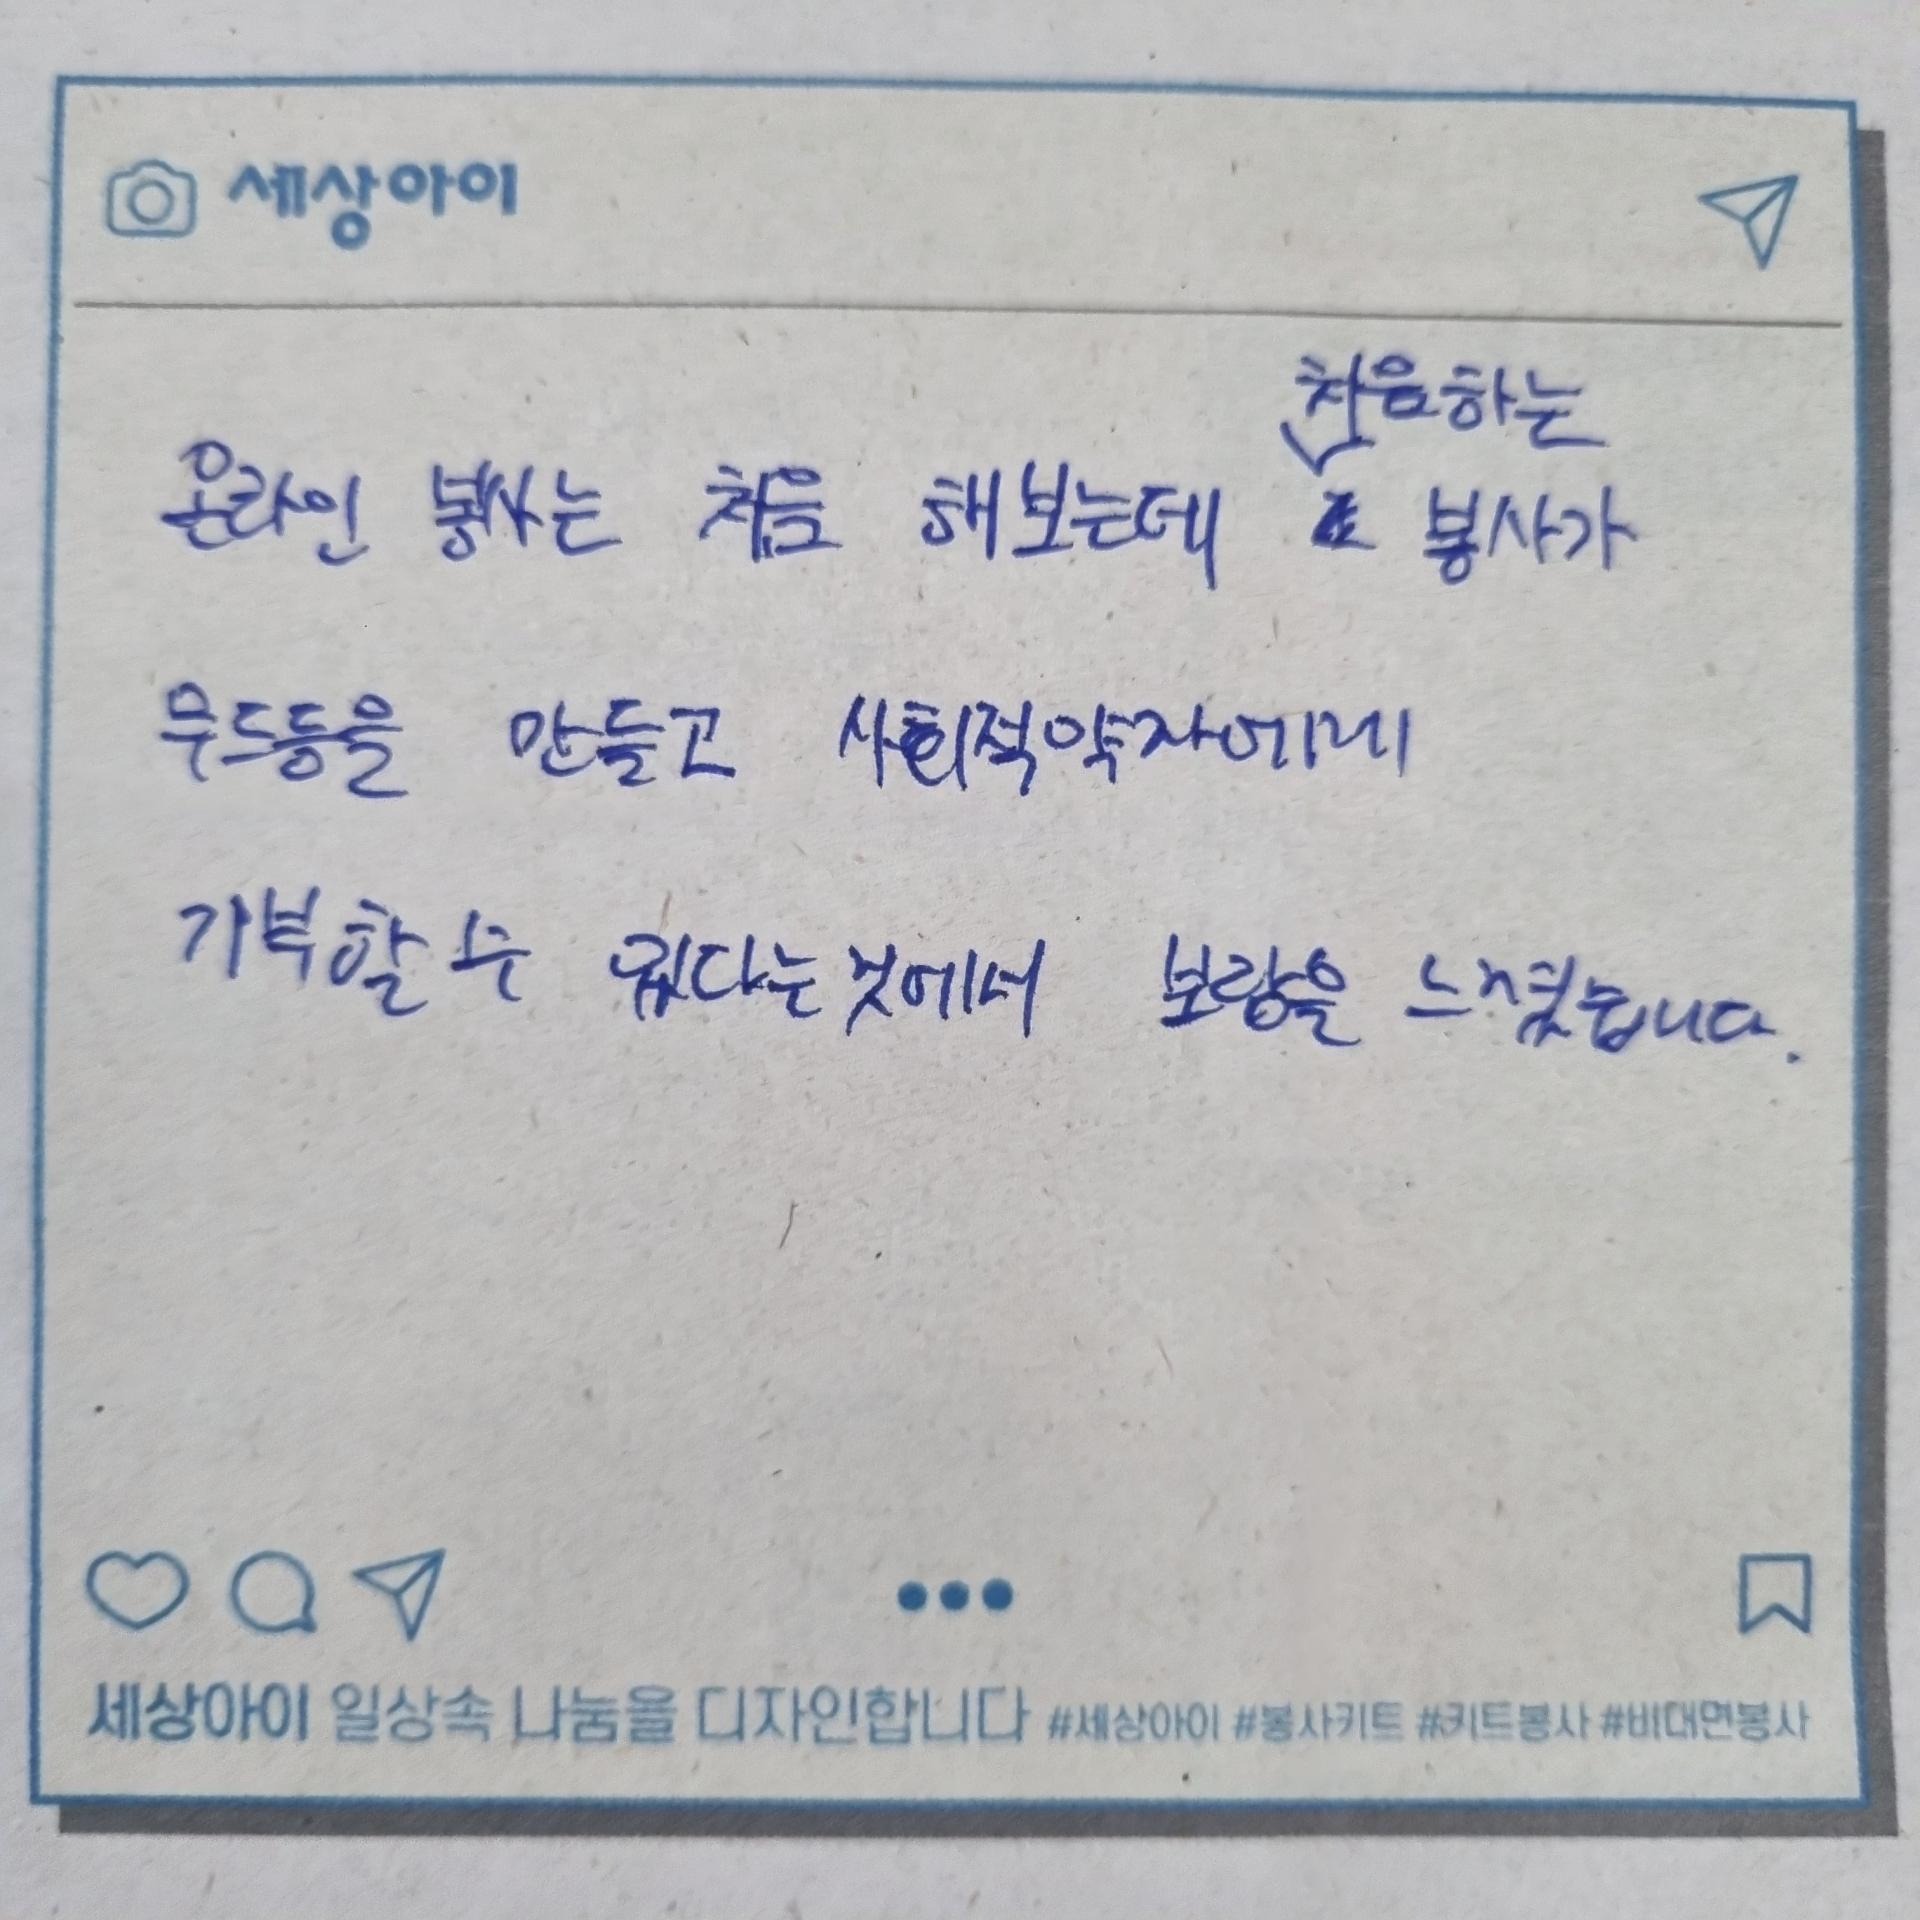 세상아이
처음하는
온라인 봉사는 처음 해보는데 봉사가
무드등을 만들고 사회적약자에게
기부할 수 있다는것에서 보람을 느꼈습니다.
세상아이 일상속 나눔을 디자인합니다 #세상아이 #봉사키트 #키트봉사 #비대면봉사